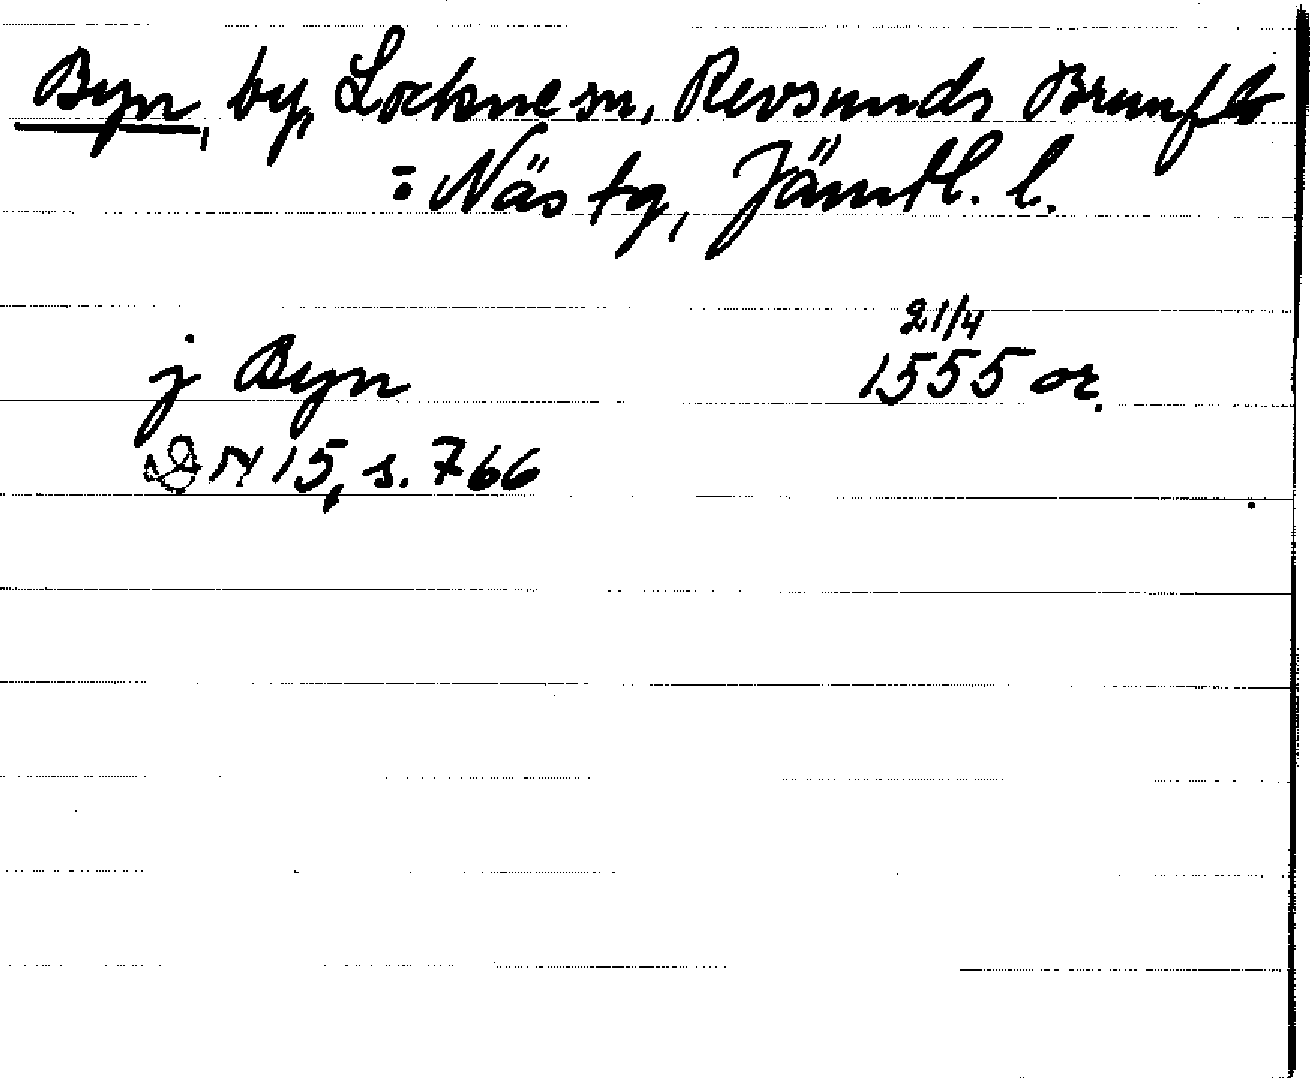 Byn, by, Lockne sn, Revsunds Brunflo
= Näs tg, Jämtl. l.
21/4
j Byn 1555 or.
DN 15, s. 766